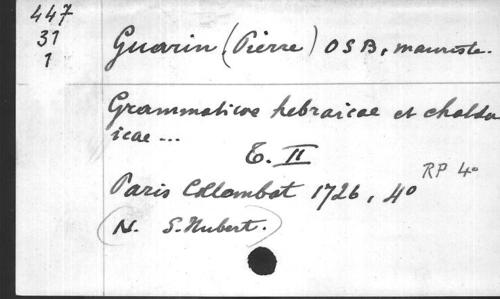 447
31
1
Guarin (Pierre) OSB, mauriste.
Grammaticae hebraicae et chalda
icae ...
T. II
RP 4°
Paris Collombat 1726, 4°
(N. S. Hubert.)